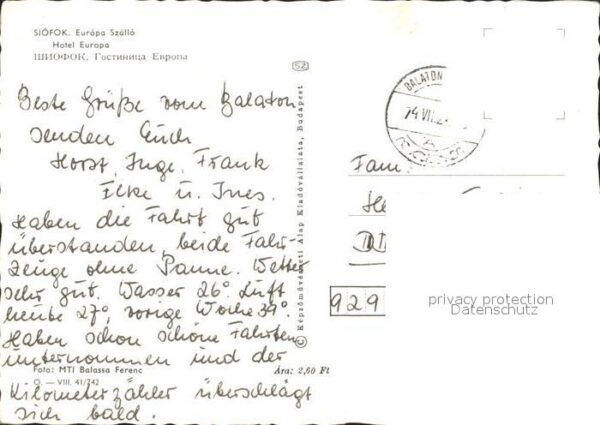 SIÓFOK. Európa Szálló
Hotel Europa
ШИОФОК, Гостиница Европа
52
Beste Grüße vom Balaton
senden Euch
Horst, Inge, Frank
Elke u. Ines.
Haben die Fahrt gut
überstanden, beide Fahr-
zeuge ohne Panne. Wetter
sehr gut. Wasser 26°. Luft
heute 27°, vorige Woche 39°.
Haben schon schöne Fahrten
unternommen und der
Kilometerzähler überschlägt
sich bald.
Foto: MTI Balassa Ferenc
Ára: 2,60 Ft
O. — VIII. 41/742
© Képzőművészeti Alap Kiadóvállalata, Budapest
BALATON
74 VII.
Fam
929
privacy protection
Datenschutz